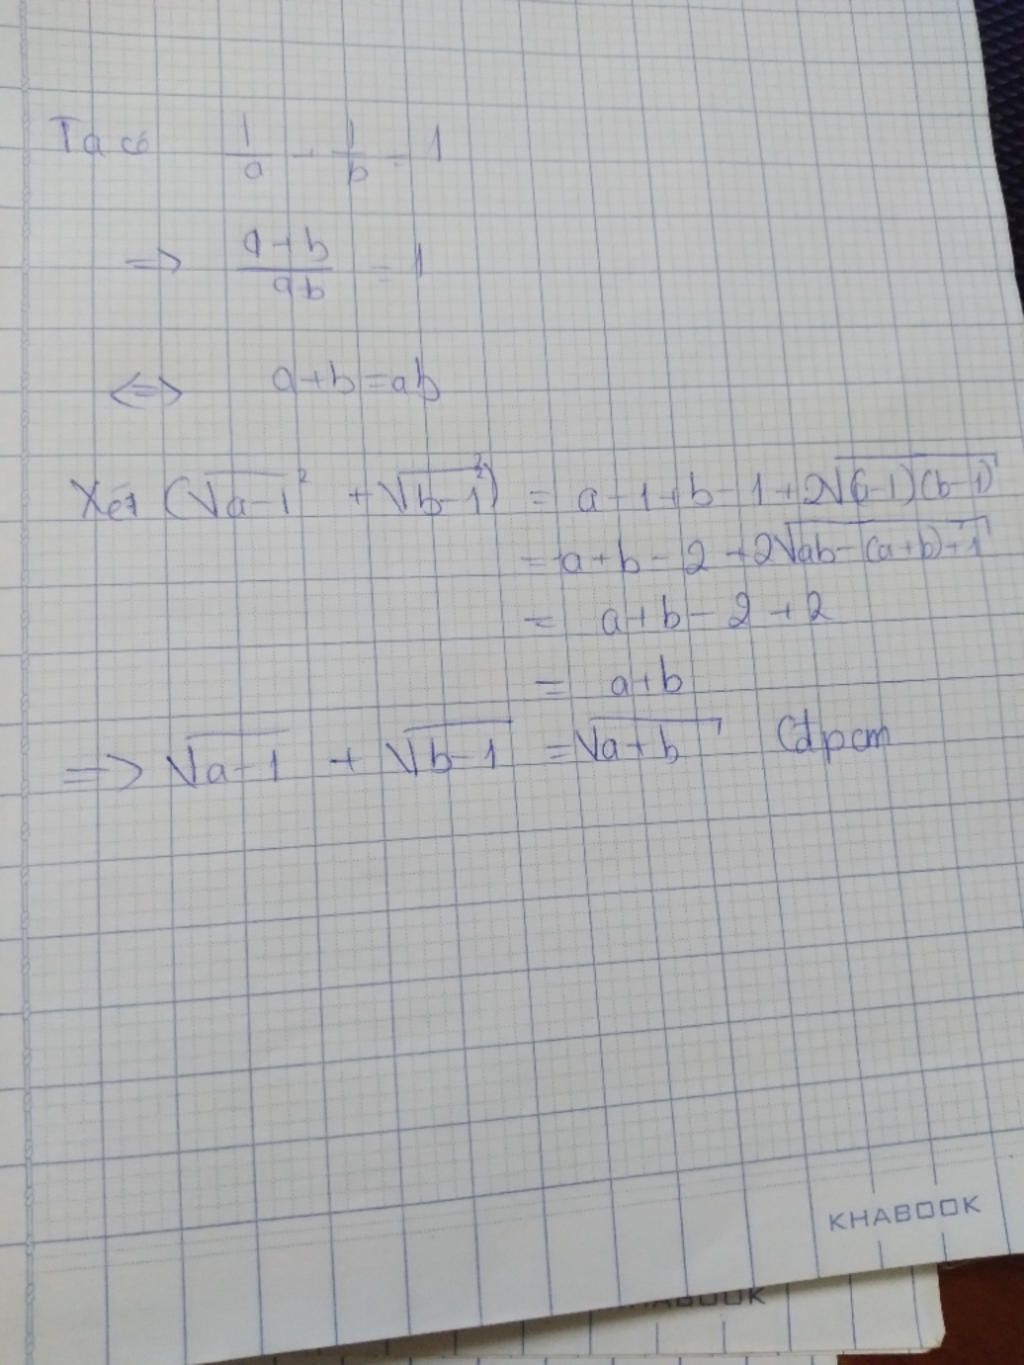 Ta có 1/a + 1/b = 1
=> (a+b)/(ab) = 1
<=> a+b = ab
Xét (√(a-1)² + √(b-1)²) = a-1+b-1+2√((a-1)(b-1))
= a+b-2+2√(ab-(a+b)+1)
= a+b-2+2
= a+b
=> √(a-1) + √(b-1) = √(a+b) (đpcm
KHABOOK
KHABOOK